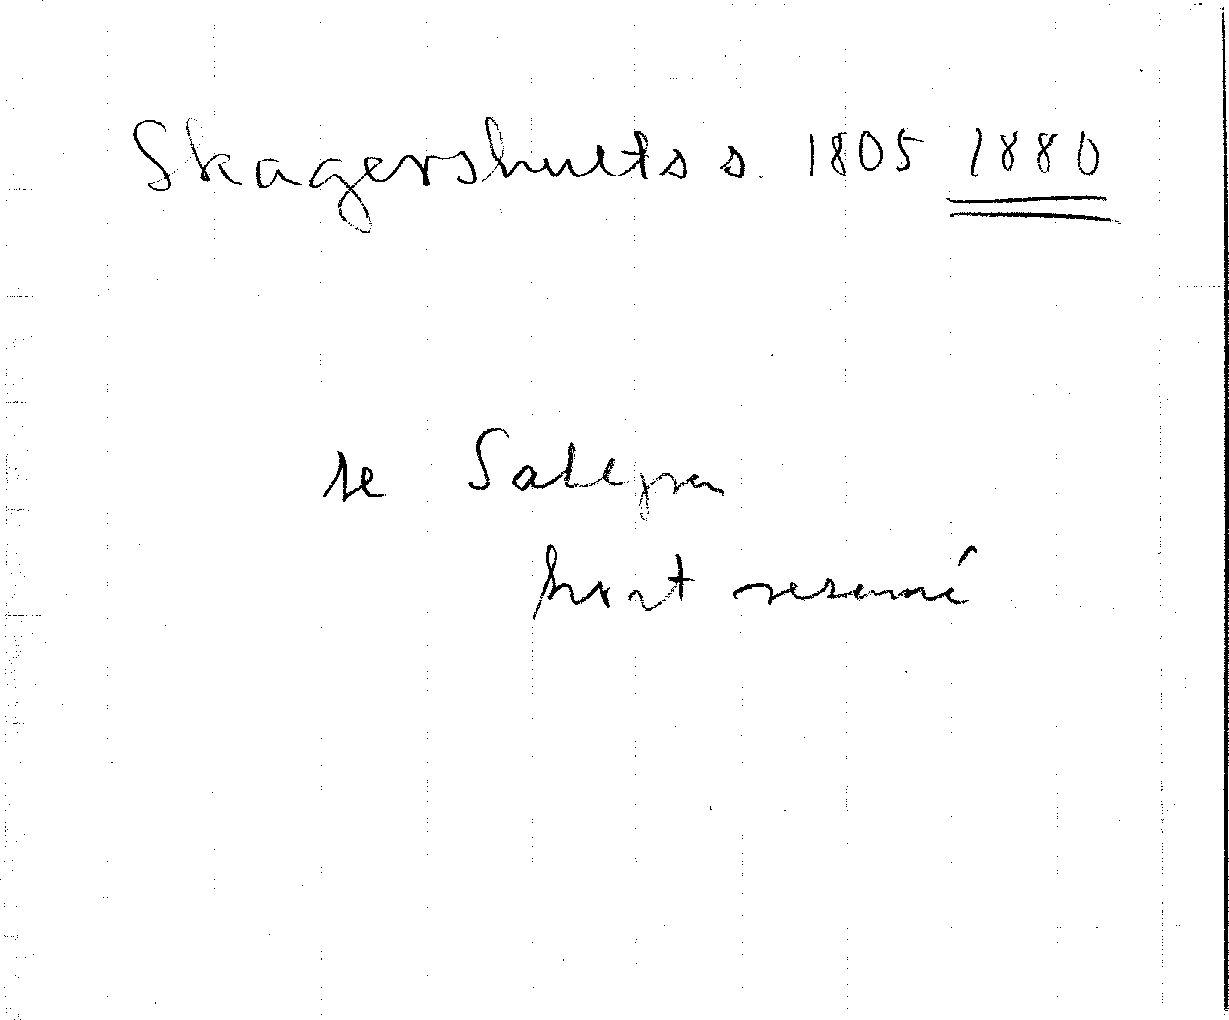 Skagershults s. 1805 1880
se
kort resumé